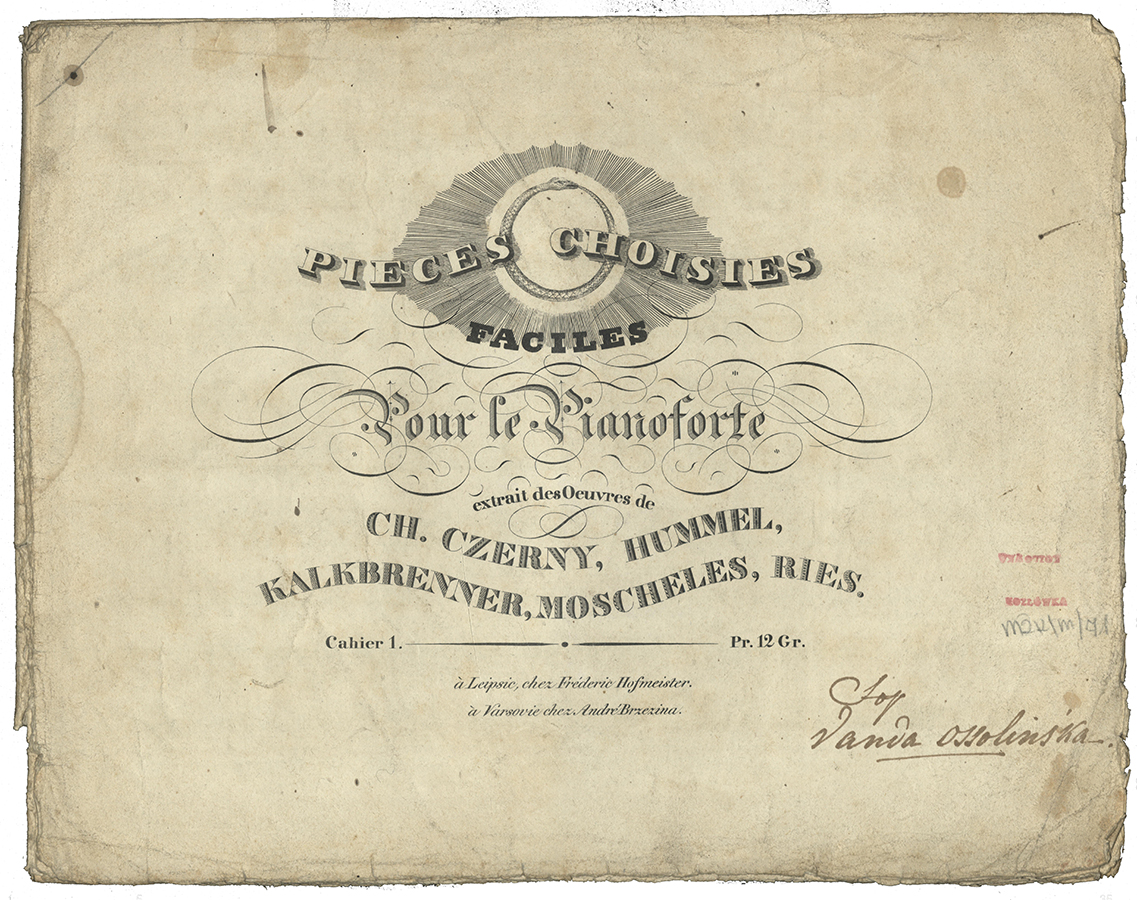 PIECES CHOISIES
FACILES
Pour le Pianoforte
extrait des Oeuvres de
CH. CZERNY, HUMMEL,
KALKBRENNER, MOSCHELES, RIES.
Cahier 1. Pr. 12 Gr.
à Leipsic, chez Fréderic Hofmeister.
à Varsovie chez André Brzezina.
KOZŁÓWKA
Vanda Ossolinska.